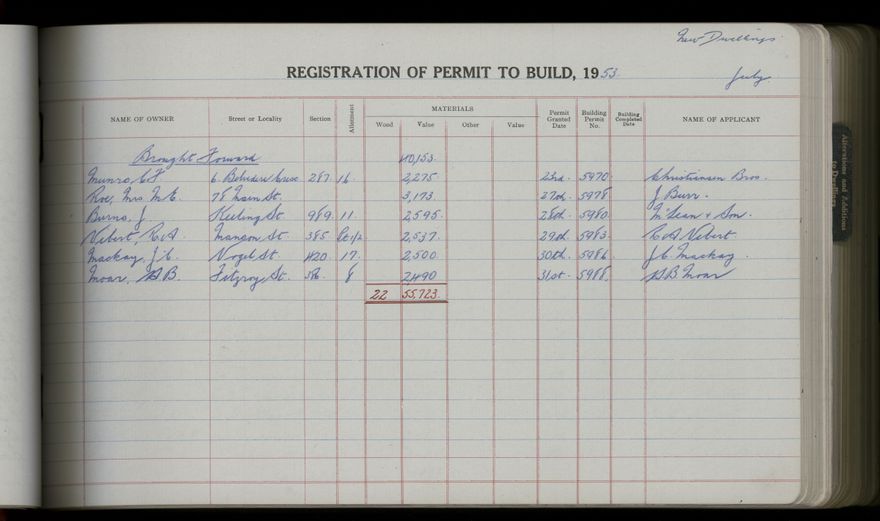 New Dwellings
REGISTRATION OF PERMIT TO BUILD, 1953.
July.
NAME OF OWNER Street or Locality Section Allotment MATERIALS Wood Value Other Value Permit Granted Date Building Permit No. Building Completed Date NAME OF APPLICANT
Brought Forward 40,153.
Munro, C F. 6. Belvedere Cresc 287 16 2,275 23rd. 5970. Christiansen Bros.
Roe, Mrs M.E. 78 Main St. 3,173. 27th. 5978 J Burr.
Burns, J. Keiling St. 989. 11. 2,595. 28th. 5980. McLean & Son.
Nebert, C.A. Manson St 385 Pt 1/2. 2,537. 29th. 5983. C.A. Nebert
Mackay, J.C. Vogel St 420. 17. 2,500. 30th. 5986. J.C. Mackay.
Moar, B. Fitzroy St. 8 2,490 31st. 5988. B Moar
22 55,723.
Alterations and Additions
to Dwellings